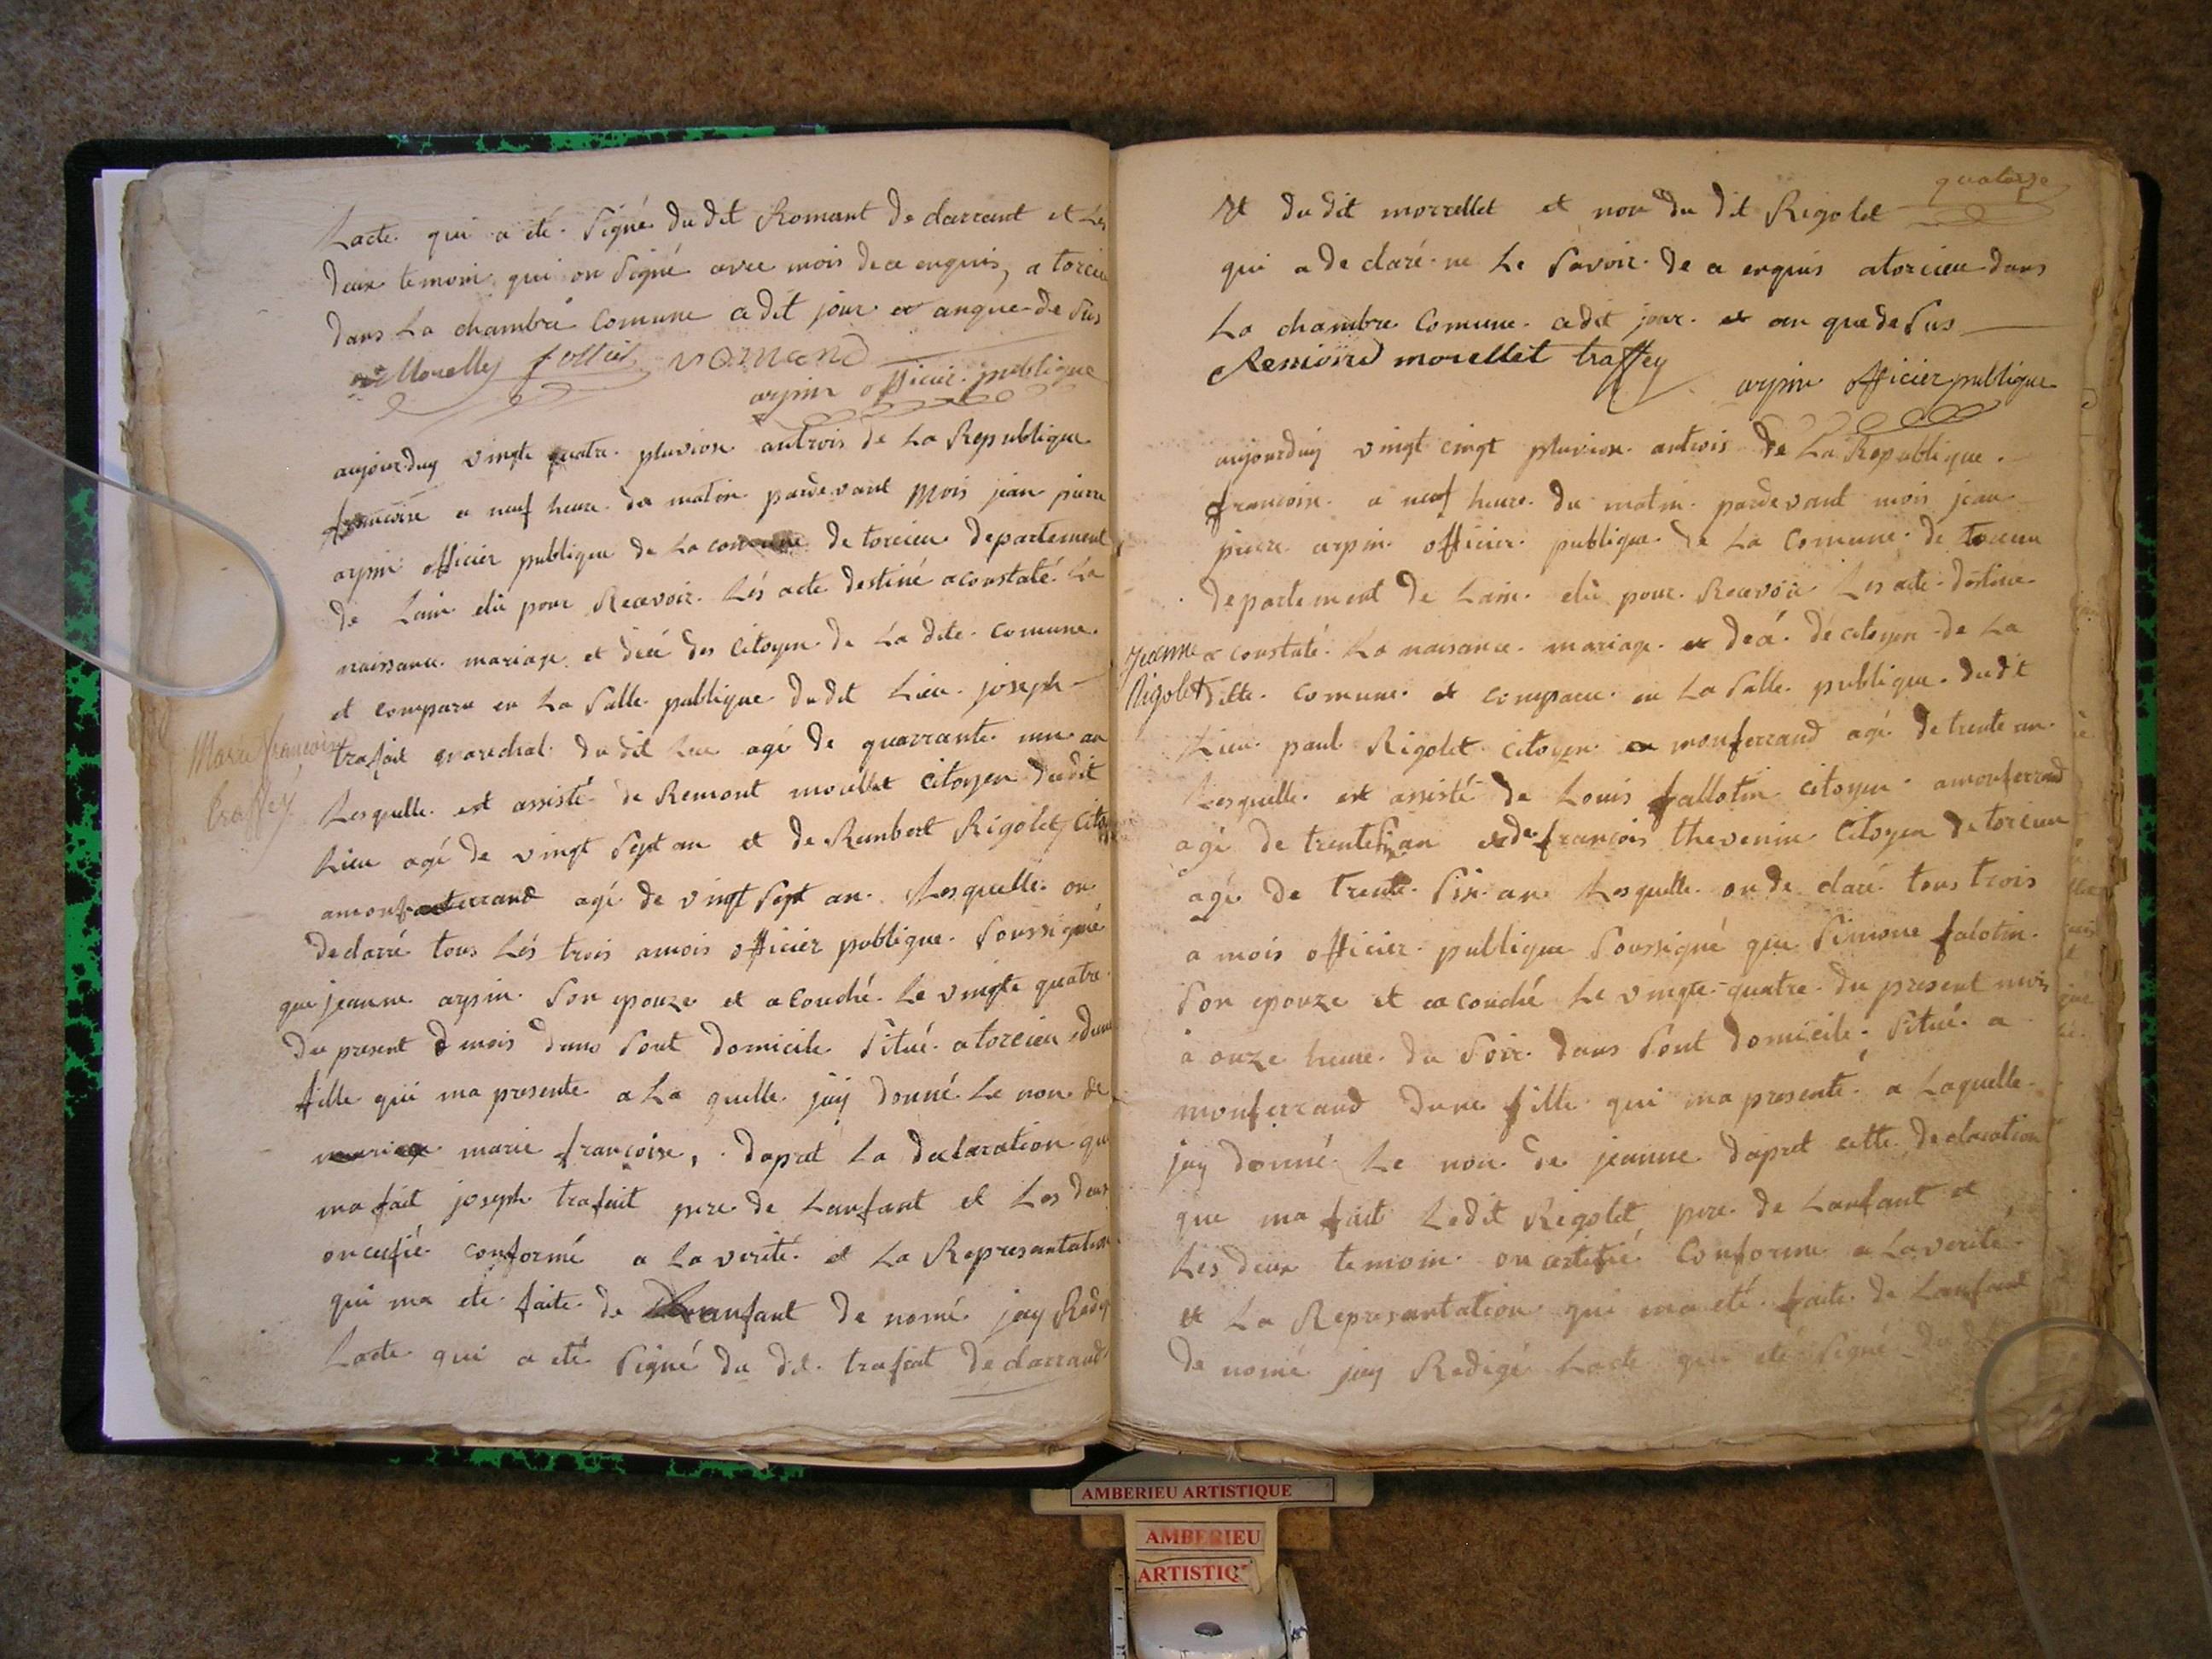 Lacte qui a été Signé du dit Romant declarrant et Les
deux temoin qui on Signé avec mois de ce enquis, a torcieu
dans La chambre Comune a dit jour et anque de Sus
Morellet follliet romand
arpin officier publique
aujourduy vingte quatre pluviose antrois de La Republique
francoise a neuf heure du matin pardevant mois jean pierre
arpin officier publique de La comune de torcieu departement
de Lain elû pour Recevoir Lés acte destiné a constaté La
naissance mariage et décé des Citoyen de La dite comune
et comparu en La Salle publique du dit Lieu joseph
Marie françoise
traffey
trafait marechal du dit Lieu agé de quarrante nun an
Lesquelle est assisté de Remont morellet Citoyen dudit
Lieu agé de vingt Sept an et de Rambert Rigolet Citoy
amonferrand agé de vingt Sept an Lesquelle on
declarré tous Lés trois amois officier publique Soussigné
que jeanne arpin Son epouze et acouché Le vingte quatre
du present mois dans Sont domicile Situé a torcieu dune
fille qui ma presente a La quelle jay donné Le non de
marie françoise, dapret La declaration que
ma fait joseph trafait pere de Lanfant et Les deux
on cerfié conformé a La verité et La Representation
qui ma eté faite de Lanfant de nomé jay Redigé
Lacte qui a eté Signé du dit trafait declarrand
quatorze
Et du dit morrellet et non du dit Rigolet
qui a declaré ne Le Savoir de ce enquis atorcieu dans
La chambre Comune adit jour et an que de Sus
Remond morellet traffey
arpin officier publique
aujourduy vingt cingt pluviose antrois de La Republique
francoise a neuf heure du matin pardevant mois jean
pierre arpin officier publique de La Comune de torcieu
departement de Lain elû pour Recevoir Les acte destine
Jeanne
Rigolet
a constaté La naisance mariage et décé dé citoyen de La
ditte comune et comparu en La Salle publique dudit
Lieu paul Rigolet Citoyen a monferrand agé de trente an
Lesquelle est assisté de Louis fallotin citoyen amonferrand
agé de trente Six an et de francois thevenin Citoyen de torcieu
agé de trente Six an Lesquelle on declaré tous trois
a mois officier publique Soussigné que Simone falotin
Son epouze et acouché Le vingte quatre du present mois
à onze heure du Soir dans Sont domicile Situé a
monferrand dune fille qui ma presenté a Laquelle
jay donné Le non de jeanne dapret cette declaration
que ma fait Ledit Rigolet pere de Lanfant et
Les deux temoin on certifié Conforme a La verité
et La Represantation qui ma eté faite de Lanfant
de nomé jay Redigé Lacte qui eté Signé du dit
AMBERIEU ARTISTIQUE
AMBERIEU
ARTISTIQ